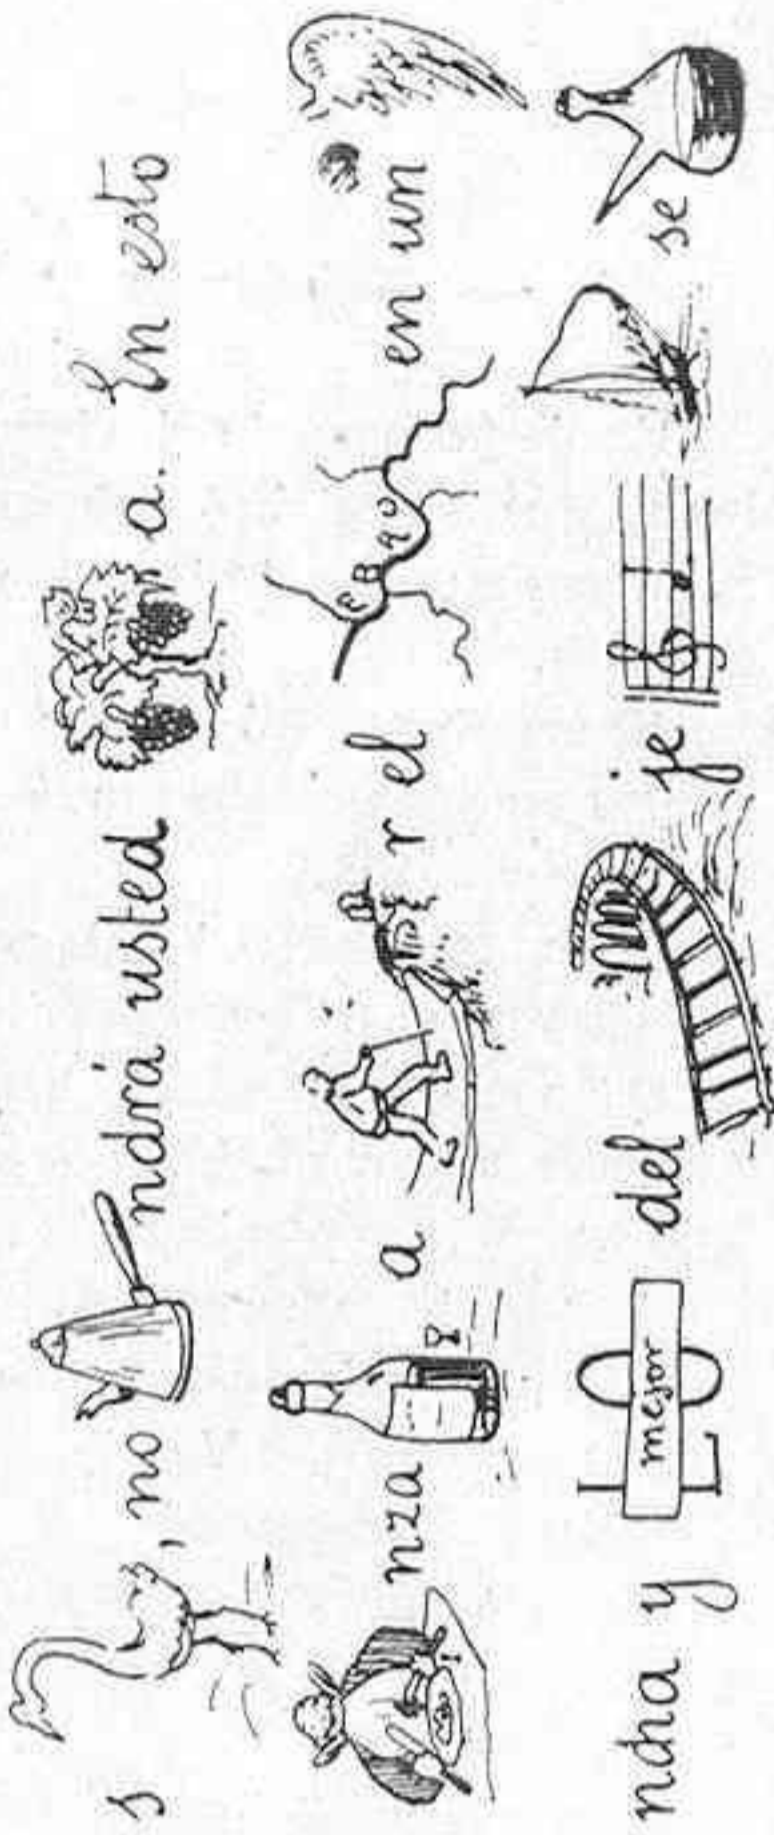 s , no ndrá usted a. En esto
nza a r el EBRO en un
ndha y L mejor O del je se